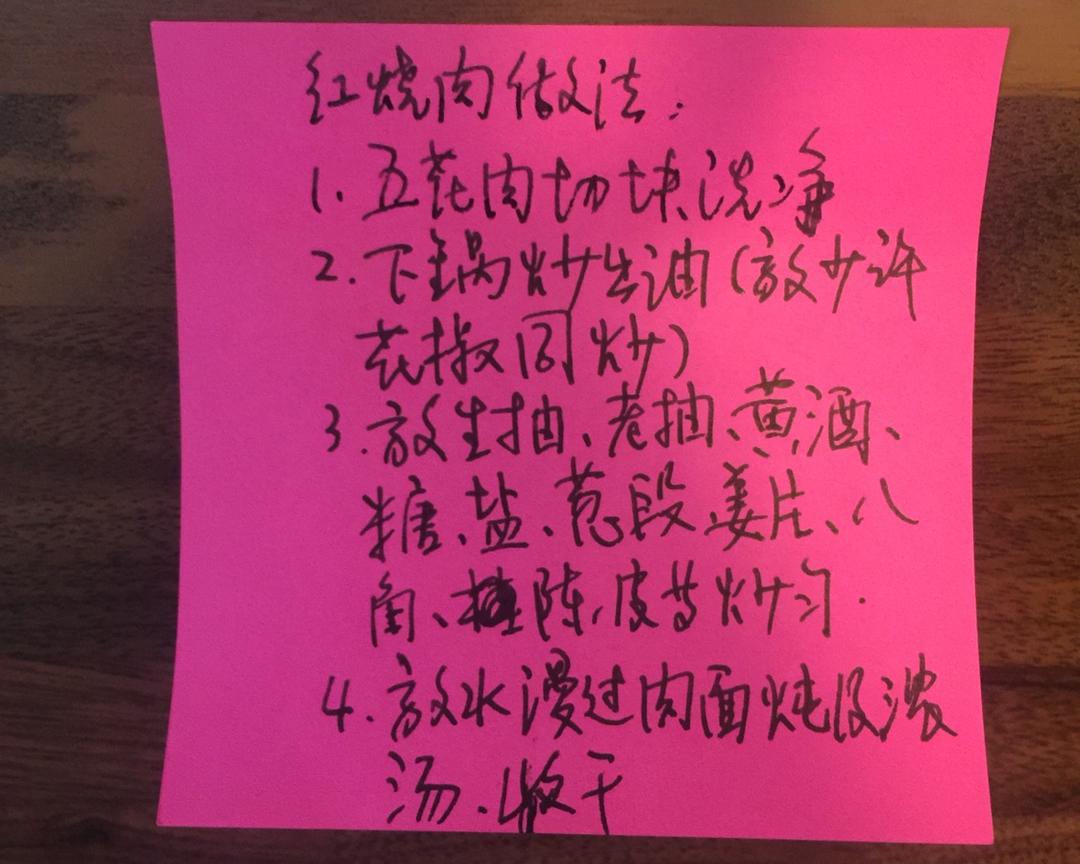 红烧肉做法:
1. 五花肉切块、洗净
2. 下锅炒出油(放少许
花椒同炒)
3. 放生抽、老抽、黄酒、
糖、盐、葱段、姜片、八
角、桂陈皮等炒匀.
4. 放水漫过肉面炖
汤.收干